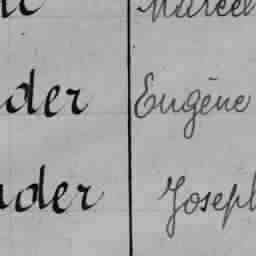 Marcel
der Eugène
der Joseph